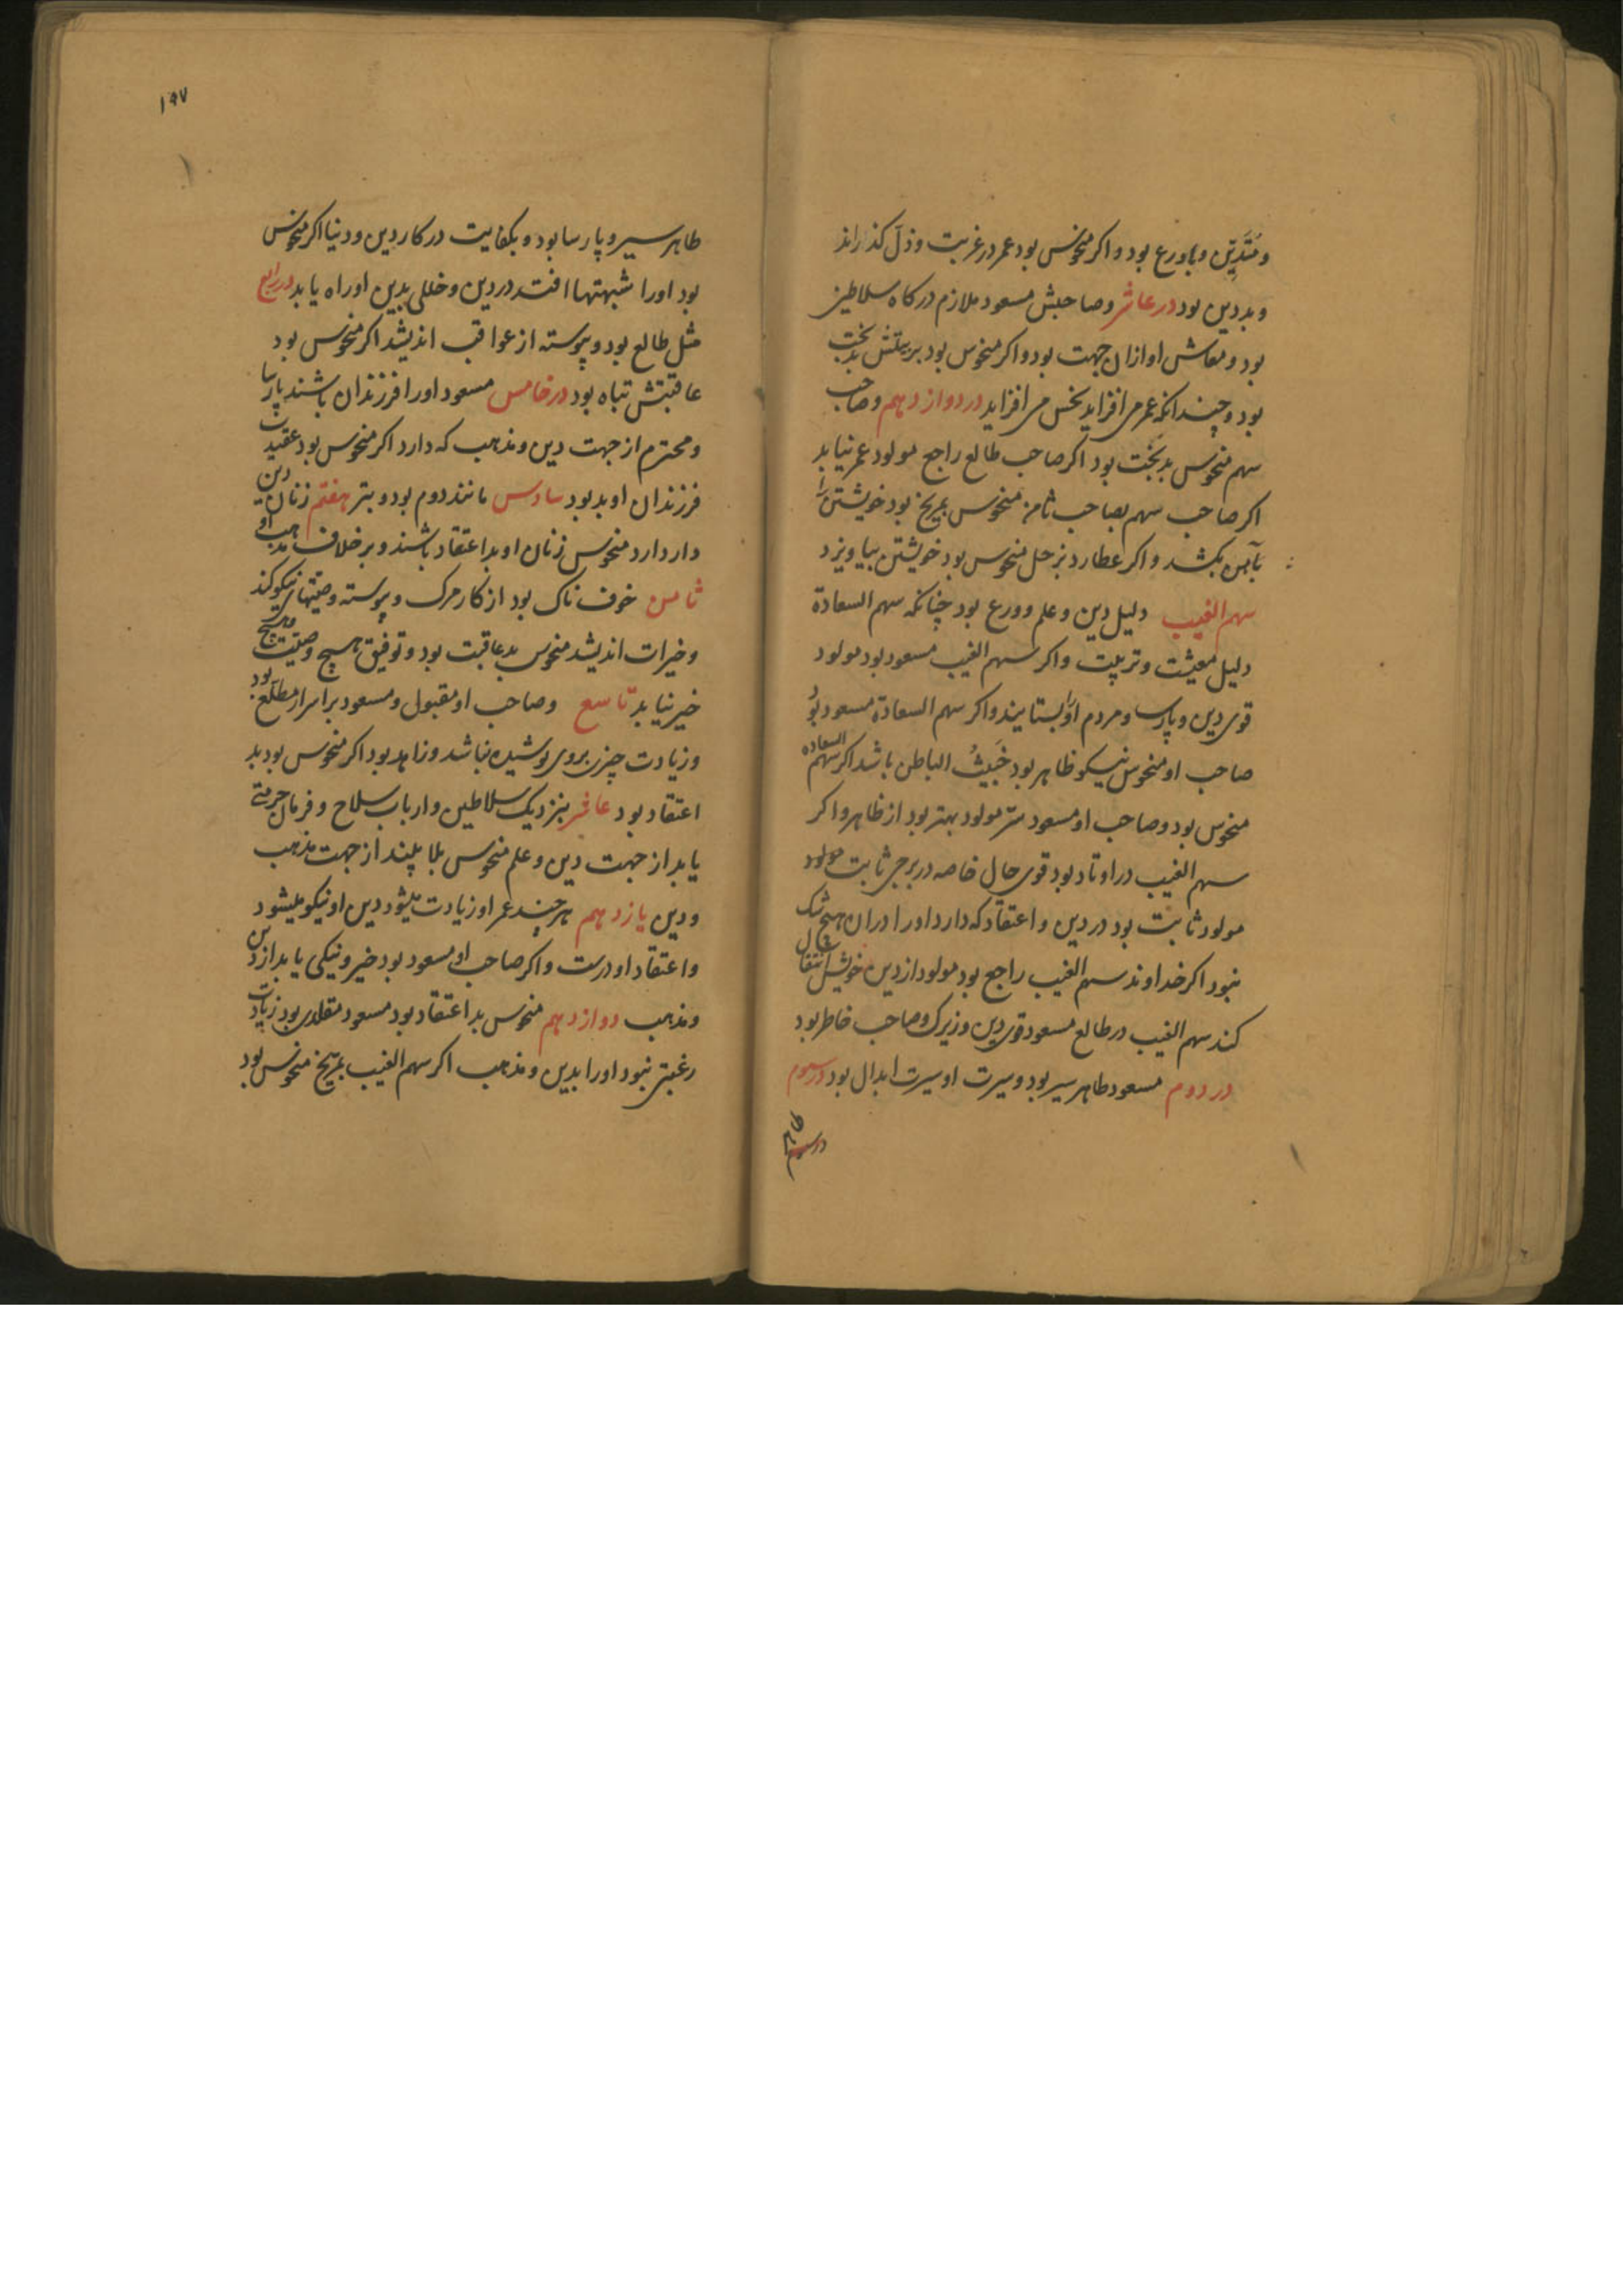 و متدین و باورع بود و اکر منحوس بود عمر در غربت و ذل کذراند
و بددین بود در عاشر و صاحبش مسعود ملازم درکاه سلاطین
بود و معاش او ازان جهت بود و اکر منحوس بود بدبخت
بود و چندانکه عمر می افزاید نحس می افزاید در دوازدهم و صاحب
سهم منحوس بدبخت بود اکر صاحب طالع راجع مولود عمر نیابد
اکر صاحب سهم بصاحب ثامن منحوس بمریخ بود خویشتن را
بآهن بکشد و اکر عطارد بزحل منحوس بود خویشتن بیاویزد
سهم الغیب دلیل دین و علم و ورع بود چنانکه سهم السعادة
دلیل معیشت و تربیت و اکر سهم الغیب مسعود بود مولود
قوی دین و پارسا و مردم او را بستایند و اکر سهم السعادة مسعود بود
صاحب او منحوس نیکو ظاهر بود خبیث الباطن باشد اکر سهم السعاده
منحوس بود و صاحب او مسعود سر مولود بهتر بود از ظاهر و اکر
سهم الغیب در اوتاد بود قوی حال خاصه در برجی ثابت مولود
مولود ثابت بود در دین و اعتقاد که دارد او را دران هیچ شک
نبود اکر خداوند سهم الغیب راجع بود مولود از دین خویش انتقال
کند سهم الغیب در طالع مسعود قوی دین و زیرک و صاحب خاطر بود
در دوم مسعود طاهر سیر بود و سیرت او سیرت ابدال بود در سوم
در سوم
۱۹۷
طاهر سیر و پارسا بود و بکفایت در کار دین و دنیا اکر منحوس
بود او را شبهتها افتد در دین و خللی بدین او راه یابد در رابع
مثل طالع بود و پیوسته از عواقب اندیشد اکر منحوس بود
عاقبتش تباه بود در خامس مسعود او را فرزندان باشند پارسا
و محترم از جهت دین و مذهب که دارد اکر منحوس بود عقیدت
فرزندان او بد بود سادس مانند دوم بود و بتر هفتم زنان دین
دار دارد منحوس زنان او بد اعتقاد باشند و بر خلاف مذهب او
ثامن خوف ناک بود از کار مرک و پیوسته وصیتهای نیکو کند
و خیرات اندیشد منحوس بدعاقبت بود و توفیق هیچ وصیت و هیچ
خیر نیابد تاسع و صاحب او مقبول و مسعود بر اسرار مطلع بود
و زیادت چیزی بروی پوشیده نباشد و زاهد بود اکر منحوس بود بد
اعتقاد بود عاشر بنزدیک سلاطین و ارباب سلاح و فرمان حرمتی
یابد از جهت دین و علم منحوس بلا بیند از جهت مذهب
و دین یازدهم هرچند عمر او زیادت میشود دین او نیکو میشود
و اعتقاد او درست و اکر صاحب او مسعود بود خیر و نیکی یابد از دین
و مذهب دوازدهم منحوس بد اعتقاد بود مسعود مقلدی بود زیادت
رغبتی نبود او را بدین و مذهب اکر سهم الغیب بمریخ منحوس بود